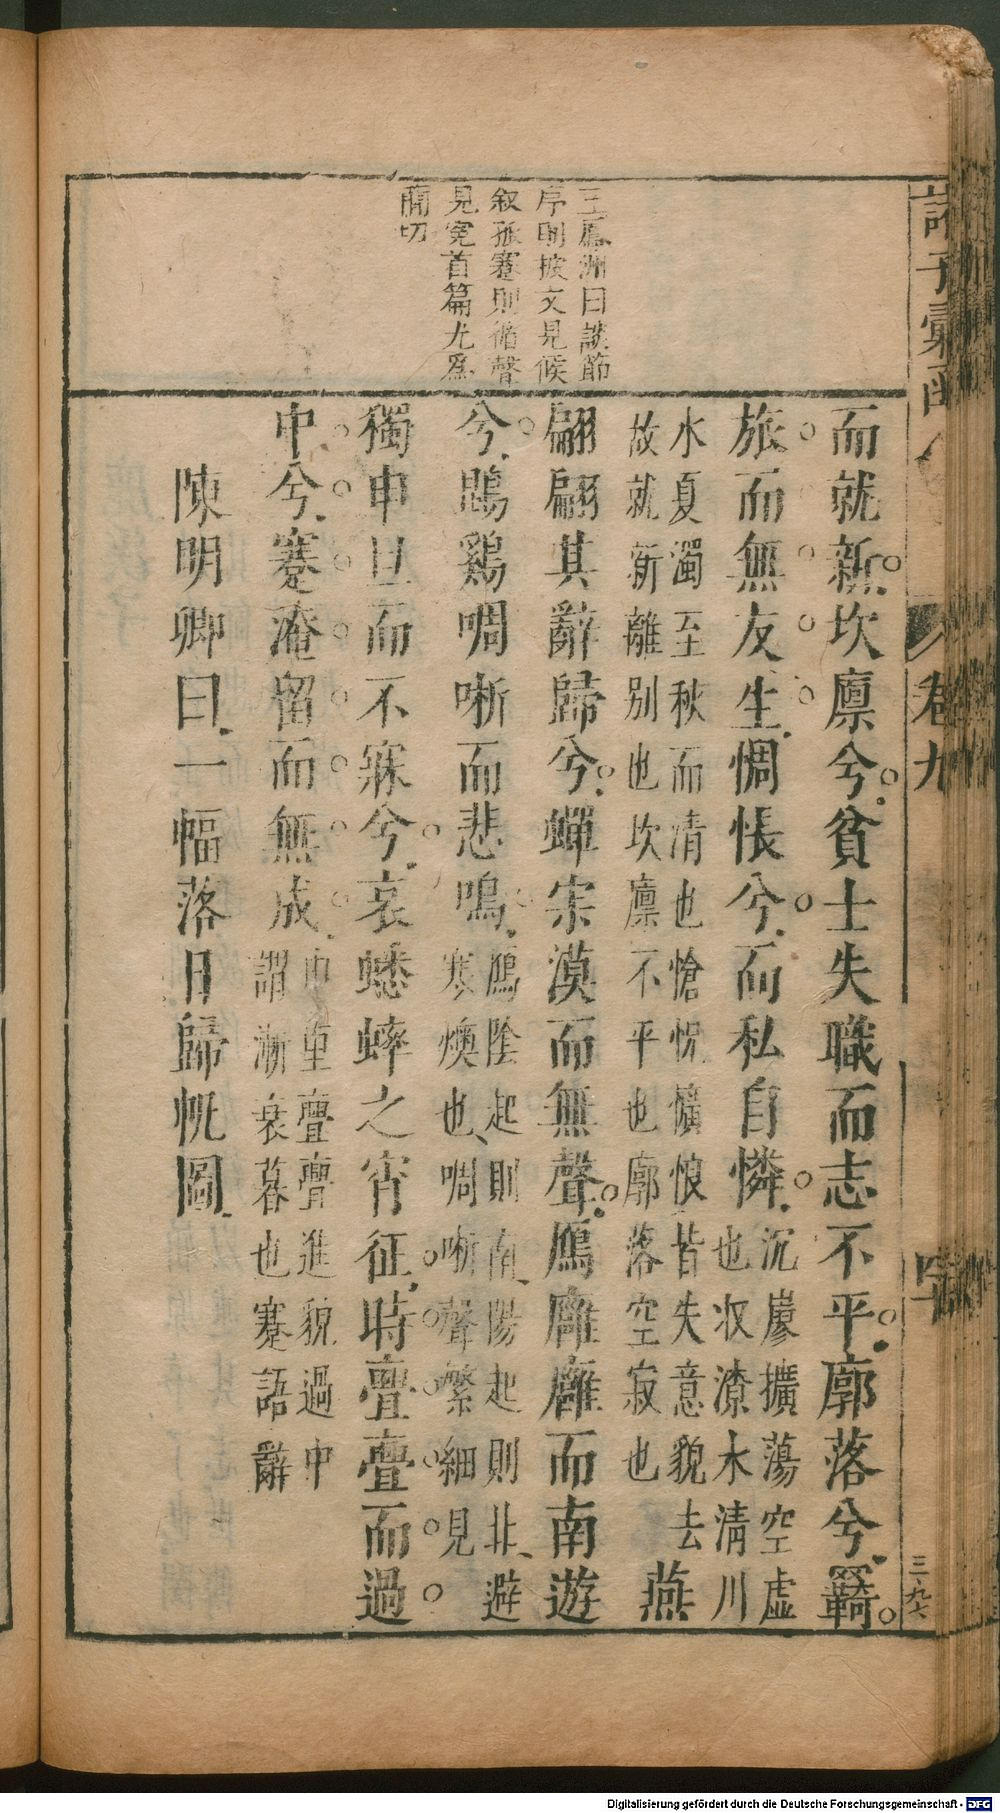 王鳳洲曰談節
序則披文見候
叙孤蹇則循聲
見寃首篇尤為
蕳切
而就新坎廪兮貧士失職而志不平廓落兮羇
旅而無友生惆悵兮而私自憐
沉廖擴蕩空虛
也収潦水清川
水夏濁至秋而清也愴怳懭悢皆失意貌去
故就新離别也坎廪不平也廓落空寂也
燕
翩翩其辭歸兮蟬宋漠而無聲鴈廱廱而南遊
兮鵾鷄啁哳而悲鳴
鴈陰起則南陽起則北避
寒燠也啁哳聲繁細見
獨申旦而不寐兮哀蟋蟀之宵征時亹亹而過
中兮蹇淹留而無成
申重亹亹進貌過中
謂漸衰暮也蹇語辭
陳明卿曰一幅落日歸帆圖
諸子彙函
卷九
四十
三九六
Digitalisierung gefördert durch die Deutsche Forschungsgemeinschaft - DFG